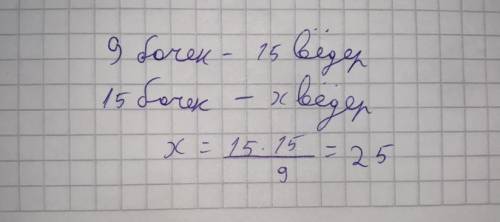 9 бочек - 15 вёдер
15 бочек - x вёдер
x = 15 · 15 / 9 = 25